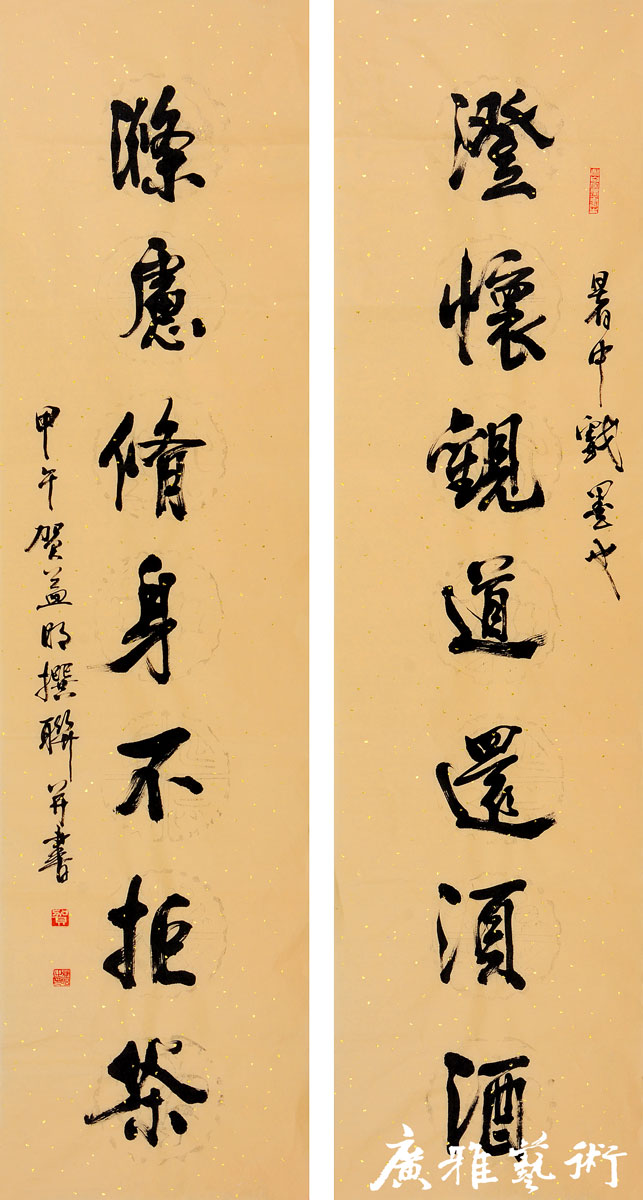 暑中戲墨也
澄懷觀道還湏酒
滌慮脩身不拒茶
甲午贺益明撰聯并書
廣雅藝術